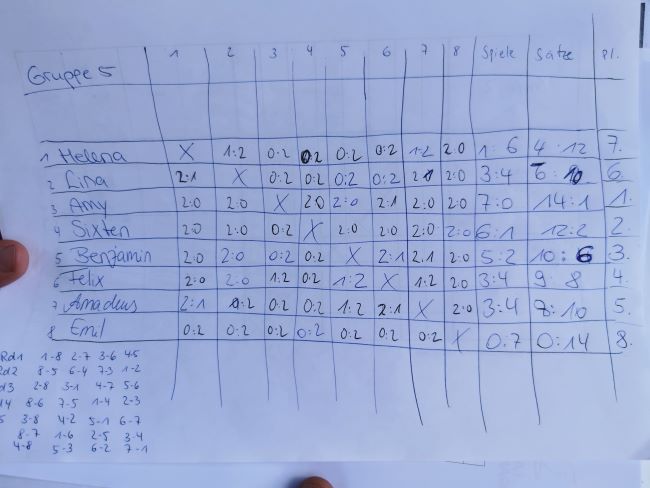 Gruppe 5 1 2 3 4 5 6 7 8 Spiele Sätze Pl.
1 Helena X 1:2 0:2 0:2 0:2 0:2 1:2 2:0 1:6 4:12 7.
2 Lina 2:1 X 0:2 0:2 0:2 0:2 3:4 6.
3 Amy 2:0 2:0 X 2:0 2:0 2:1 2:0 2:0 7:0 14:1 1.
4 Sixten 2:0 2:0 0:2 X 2:0 2:0 2:0 2:0 6:1 12:2 2.
5 Benjamin 2:0 2:0 0:2 0:2 X 2:1 2:1 2:0 5:2 10:6 3.
6 Felix 2:0 2:0 1:2 0:2 1:2 X 1:2 2:0 3:4 9:8 4.
7 Amadeus 2:1 0:2 0:2 0:2 1:2 2:1 X 2:0 3:4 5.
8 Emil 0:2 0:2 0:2 0:2 0:2 0:2 0:2 X 0:7 0:14 8.
Rd1 1-8 2-7 3-6 4-5
Rd2 8-5 6-4 7-3 1-2
d3 2-8 3-1 4-7 5-6
d4 8-6 7-5 1-4 2-3
5 3-8 4-2 5-1 6-7
8-7 1-6 2-5 3-4
4-8 5-3 6-2 7-1